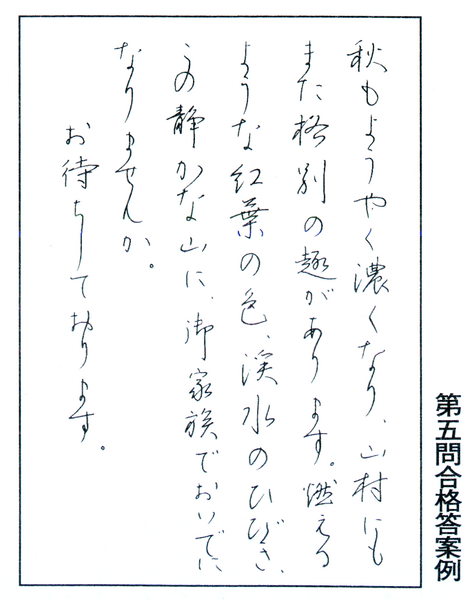 秋もようやく濃くなり、山村にも
また格別の趣があります。燃える
ような紅葉の色、渓水のひびき、
この静かな山に、御家族でおいでに
なりませんか。
お待ちしております。
第五問合格答案例